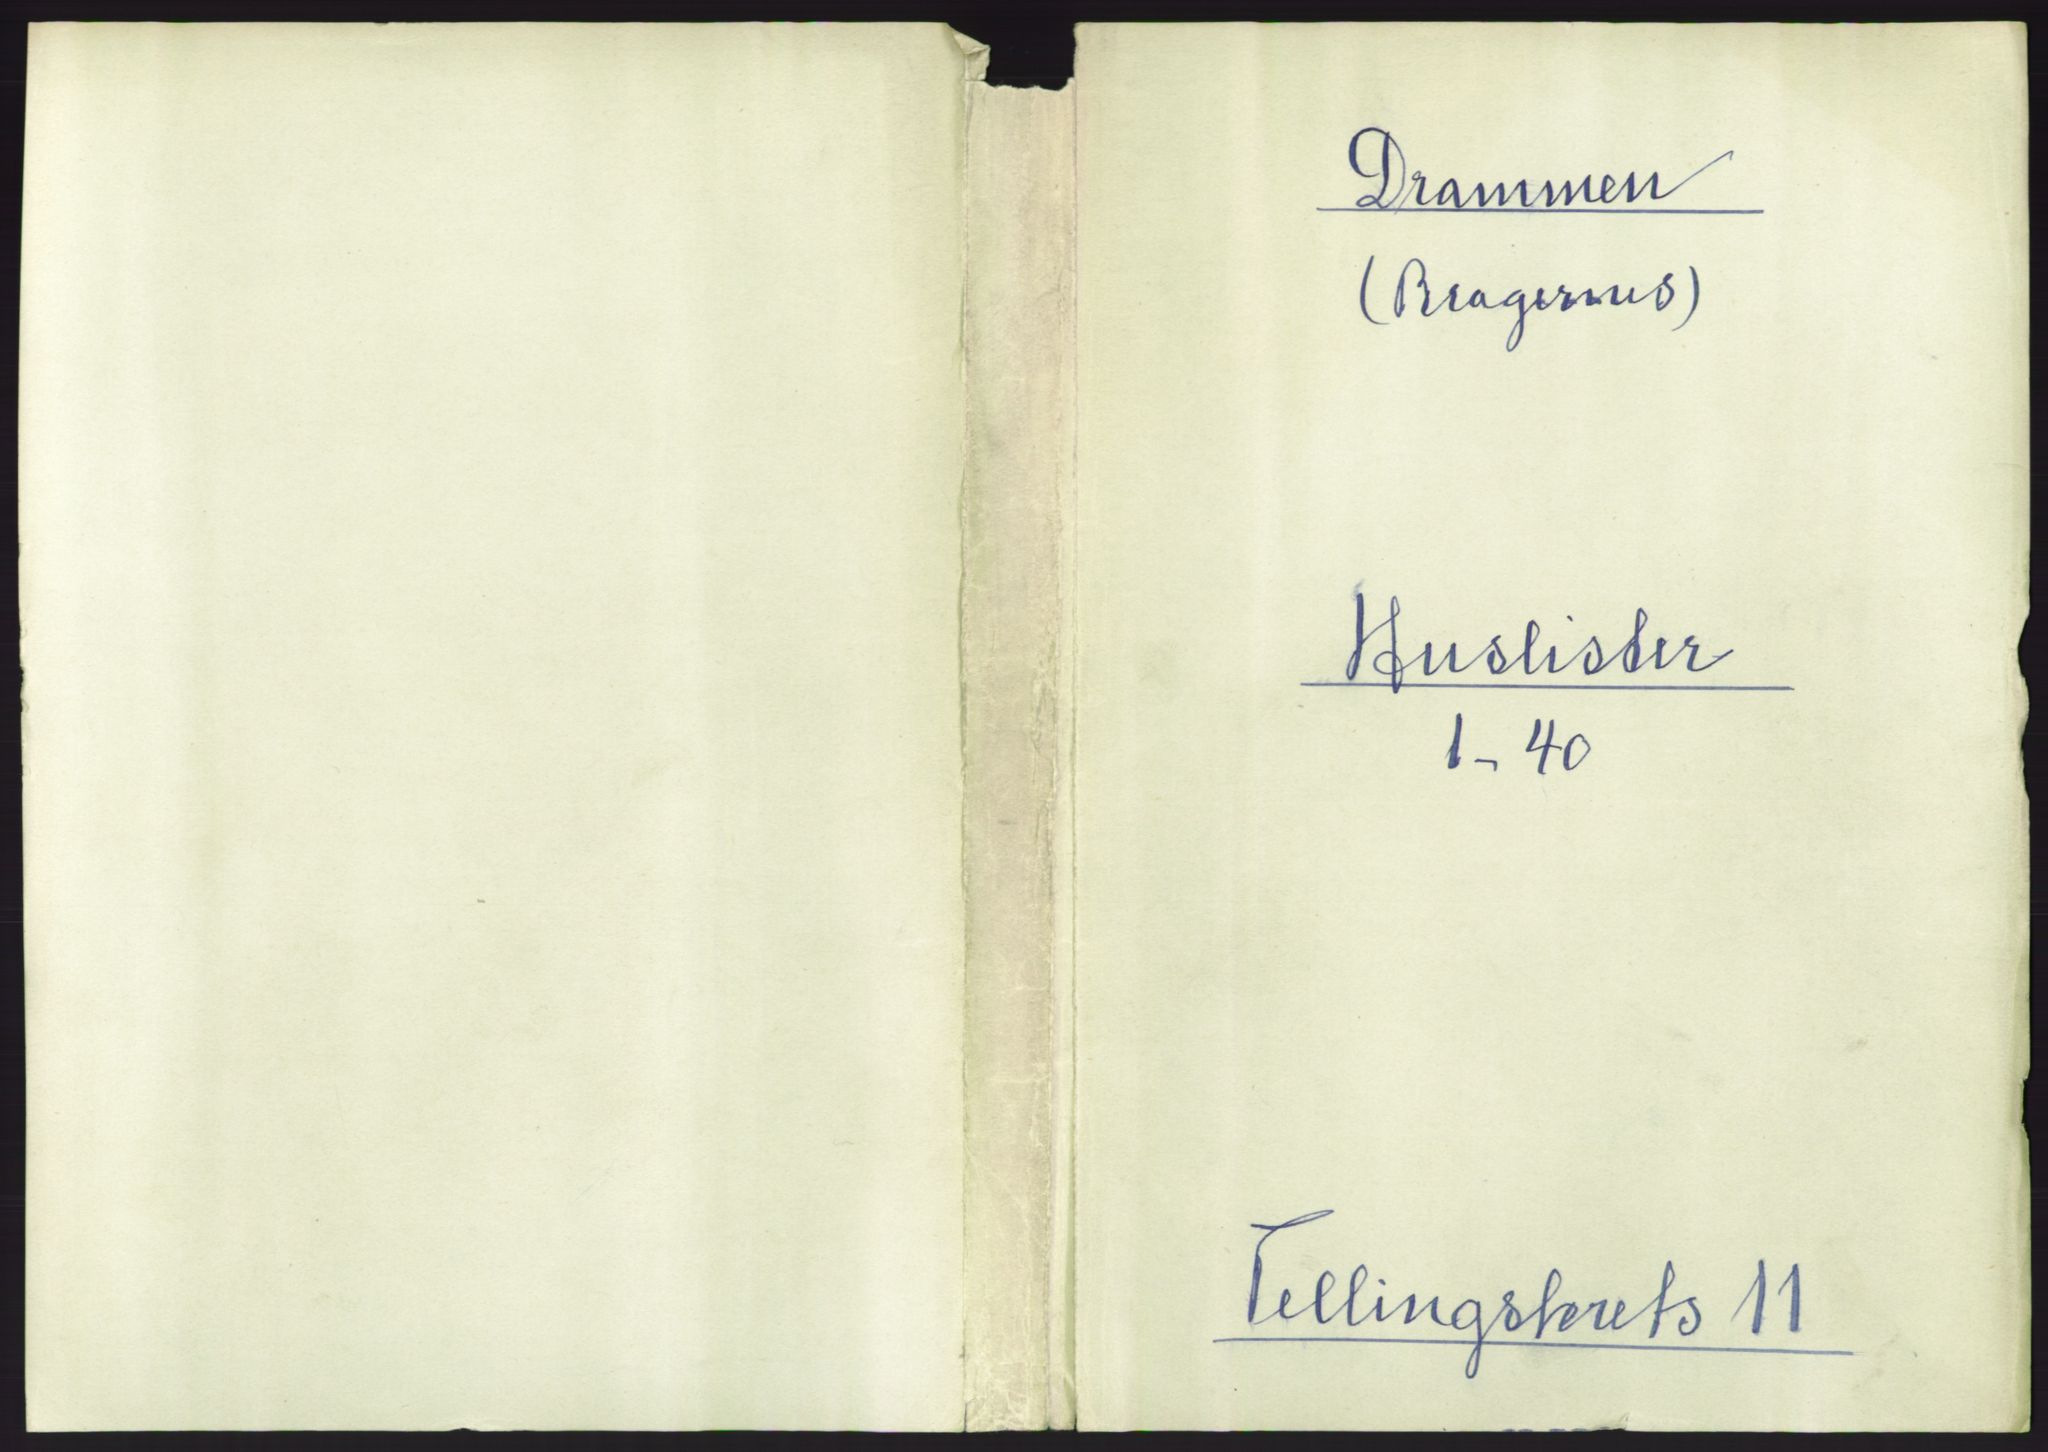 Drammen
(Bragernes)
Huslister
1-40
Tellingskrets 11